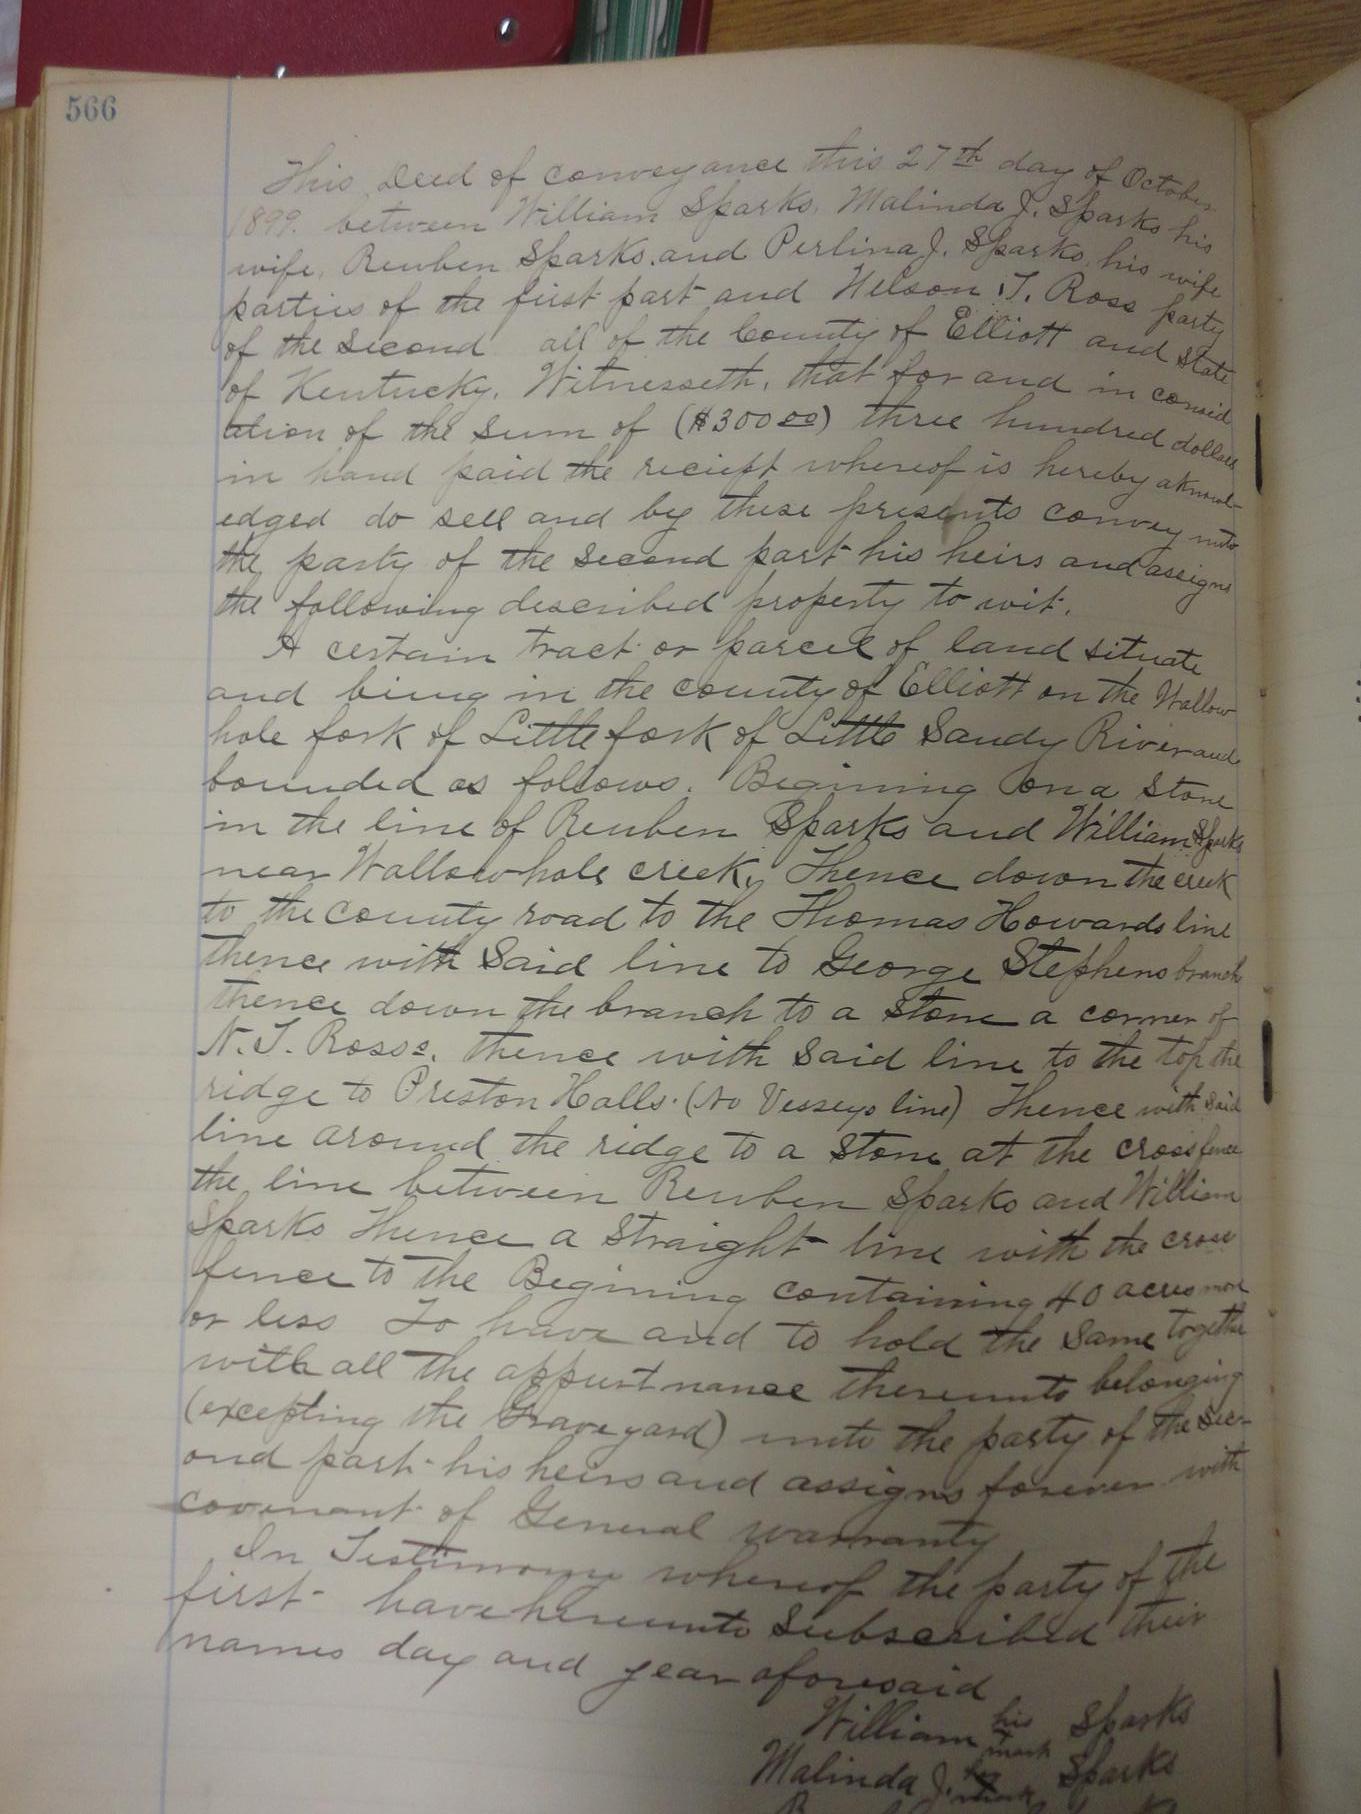 566
This Deed of conveyance this 27th day of October
1899. between William Sparks, Malinda J. Sparks his
wife, Reuben Sparks, and Perlina J. Sparks, his wife
parties of the first part and Nelson T. Ross party
of the second all of the County of Elliott and State
of Kentucky. Witnesseth, that for and in consid
ation of the sum of ($300.00) three hundred dollars
in hand paid the recieft whereof is hereby aknowl-
edged do sell and by these presents convey unto
the party of the second part his heirs and assigns
the following described property to wit.
A certain tract or parcel of land situate
and being in the county of Elliott on the Wallow
hole fork of Little fork of Little Sandy River and
bounded as follows. Begining on a Stone
in the line of Reuben Sparks and William Sparks
near Wallowhole creek, Thence down the creek
to the county road to the Thomas Howards line
thence with Said line to George Stephens branch
thence down the branch to a Stone a corner of
N. T. Ross's. thence with Said line to the top the
ridge to Preston Halls. (No Vesseys line) Thence with Said
line around the ridge to a Stone at the cross fence
the line between Reuben Sparks and William
Sparks Thence a Straight line with the cross
fence to the Begining containing 40 acres more
or less To have and to hold the Same together
with all the appurtnance thereunto belonging
(excepting the Graveyard) unto the party of the Sec-
ond part his heirs and assigns forever with
covenant of General warranty
In Testimony whereof the party of the
first have hereunto Subscribed their
names day and year aforesaid
William his mark Sparks
Malinda J. her x mark Sparks